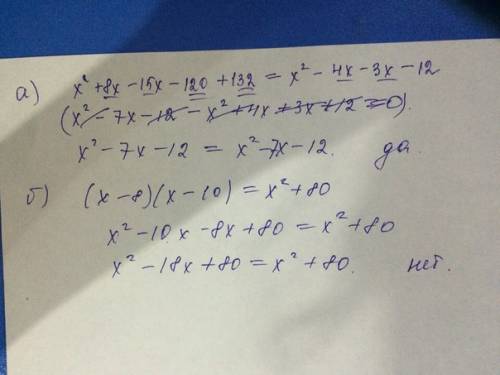 а) x² + 8x - 15x - 120 + 132 = x² - 4x - 3x - 12
(x² - 7x - 12 - x² + 4x + 3x + 12 = 0).
x² - 7x - 12 = x² - 7x - 12. да.
б) (x - 8)(x - 10) = x² + 80
x² - 10x - 8x + 80 = x² + 80
x² - 18x + 80 = x² + 80. нет.